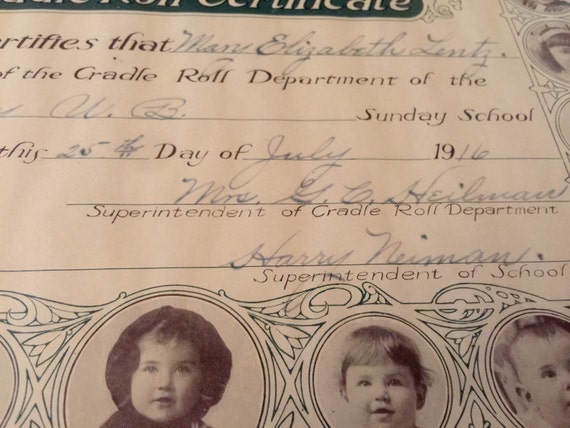 Cradle Roll Certificate
certifies that Mary Elizabeth Lentz.
of the Cradle Roll Department of the
U. B. Sunday School
this 25th Day of July 1916
Mrs. G. C. Heilman
Superintendent of Cradle Roll Department
Harry Neiman.
Superintendent of School